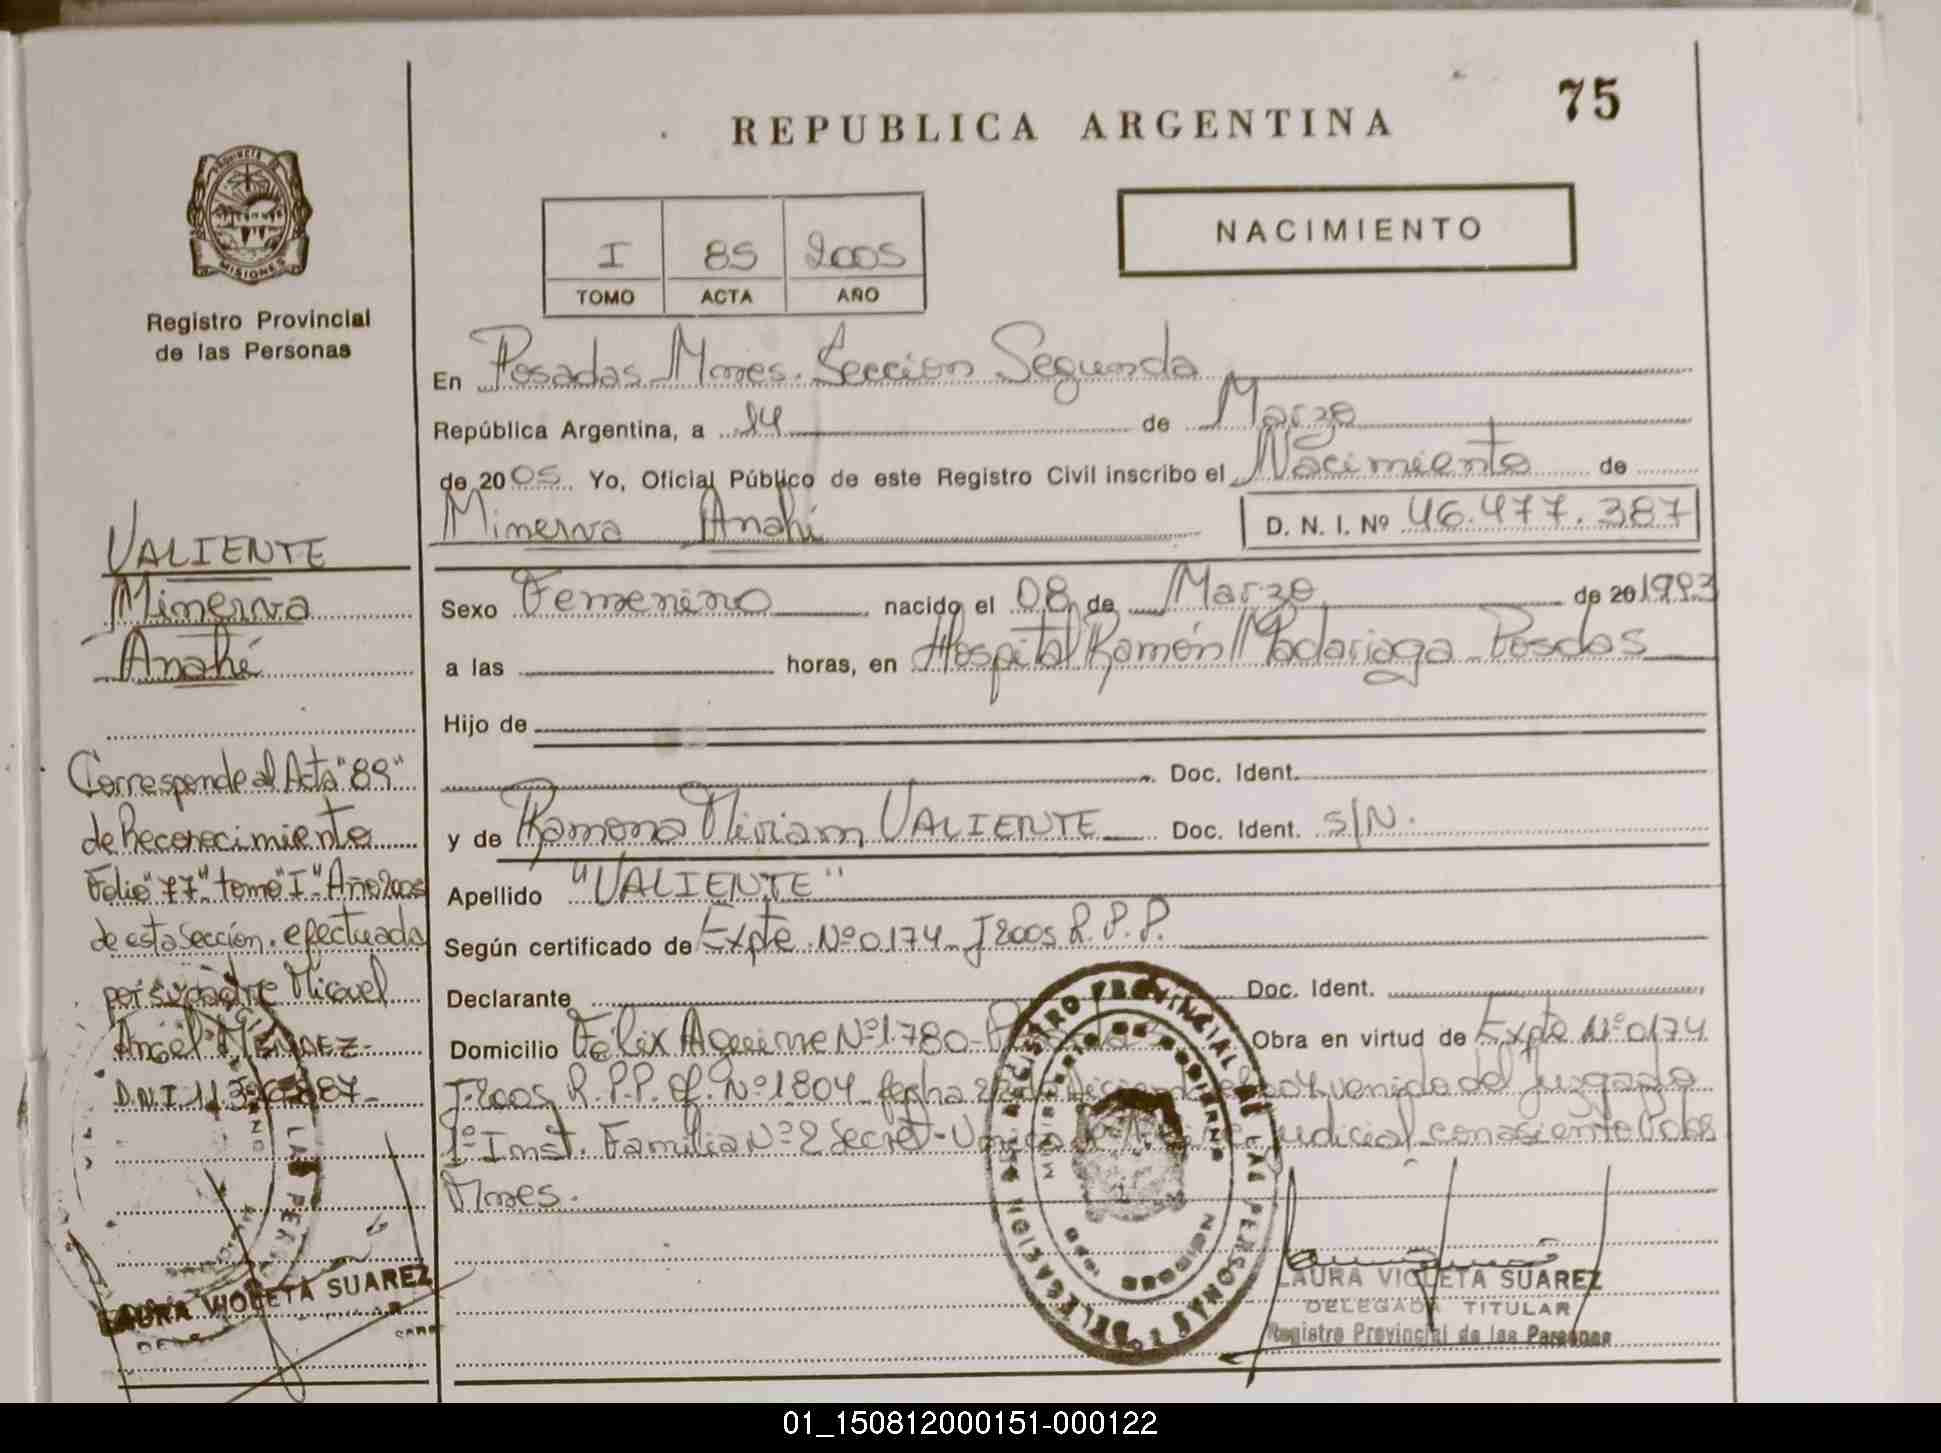 75
REPUBLICA ARGENTINA
PROVINCIA DE
MISIONES
Registro Provincial
de las Personas
I 85 2005
TOMO ACTA AÑO
NACIMIENTO
En Posadas Mnes. Seccion Segunda
República Argentina, a 14 de Marzo
de 2005 Yo, Oficial Público de este Registro Civil inscribo el Nacimiento de
Minerva Anahí D. N. I. Nº 46.477.387
Sexo Femenino nacido el 08 de Marzo de 20 1993
a las horas, en Hospital Ramón Madariaga Posdas
Hijo de
Doc. Ident.
y de Ramona Miriam VALIENTE Doc. Ident. S/N.
Apellido "VALIENTE"
Según certificado de Expte Nº 0174 J 2005 R.P.P.
Declarante Doc. Ident.
Domicilio Félix Aguirre Nº 1780 Obra en virtud de Expte Nº 0174
J-2005 R.P.P. of. Nº 1804 fecha venido del Juzgado
1º Inst. Familia Nº 2 Secret- judicial con asiento Pdas
Mnes.
REGISTRO PROVINCIAL DE LAS PERSONAS
LAURA VIOLETA SUAREZ
DELEGADA TITULAR
Registro Provincial de las Personas
VALIENTE
Minerva
Anahí
Corresponde al Acta "89"
de Reconocimiento
Folio "77" tomo "I" Año 2005
de esta Sección. efectuada
por su padre Miguel
Angel
D.N.I 11.3
LAURA VIOLETA SUAREZ
01_150812000151-000122